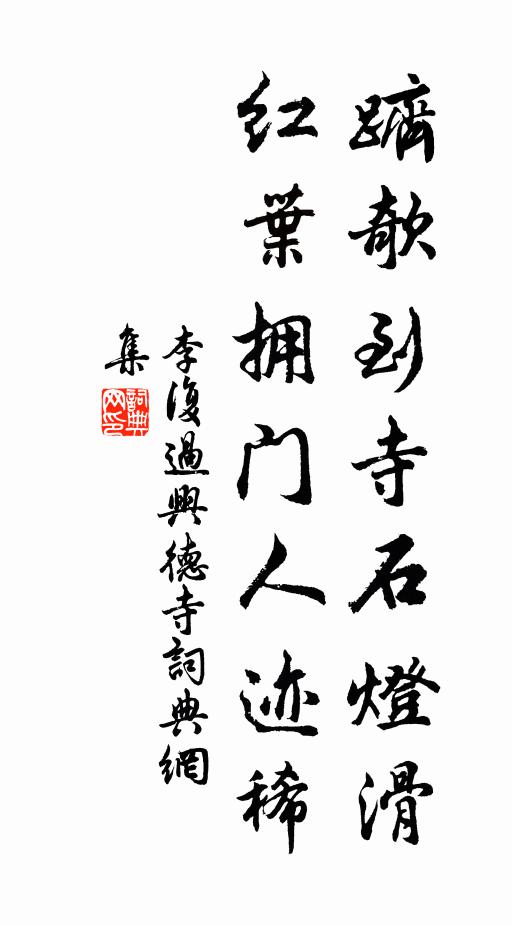 躋欹到寺石燈滑
紅葉拥门人迹稀
李復過興德寺詞典網
集
詞典网印